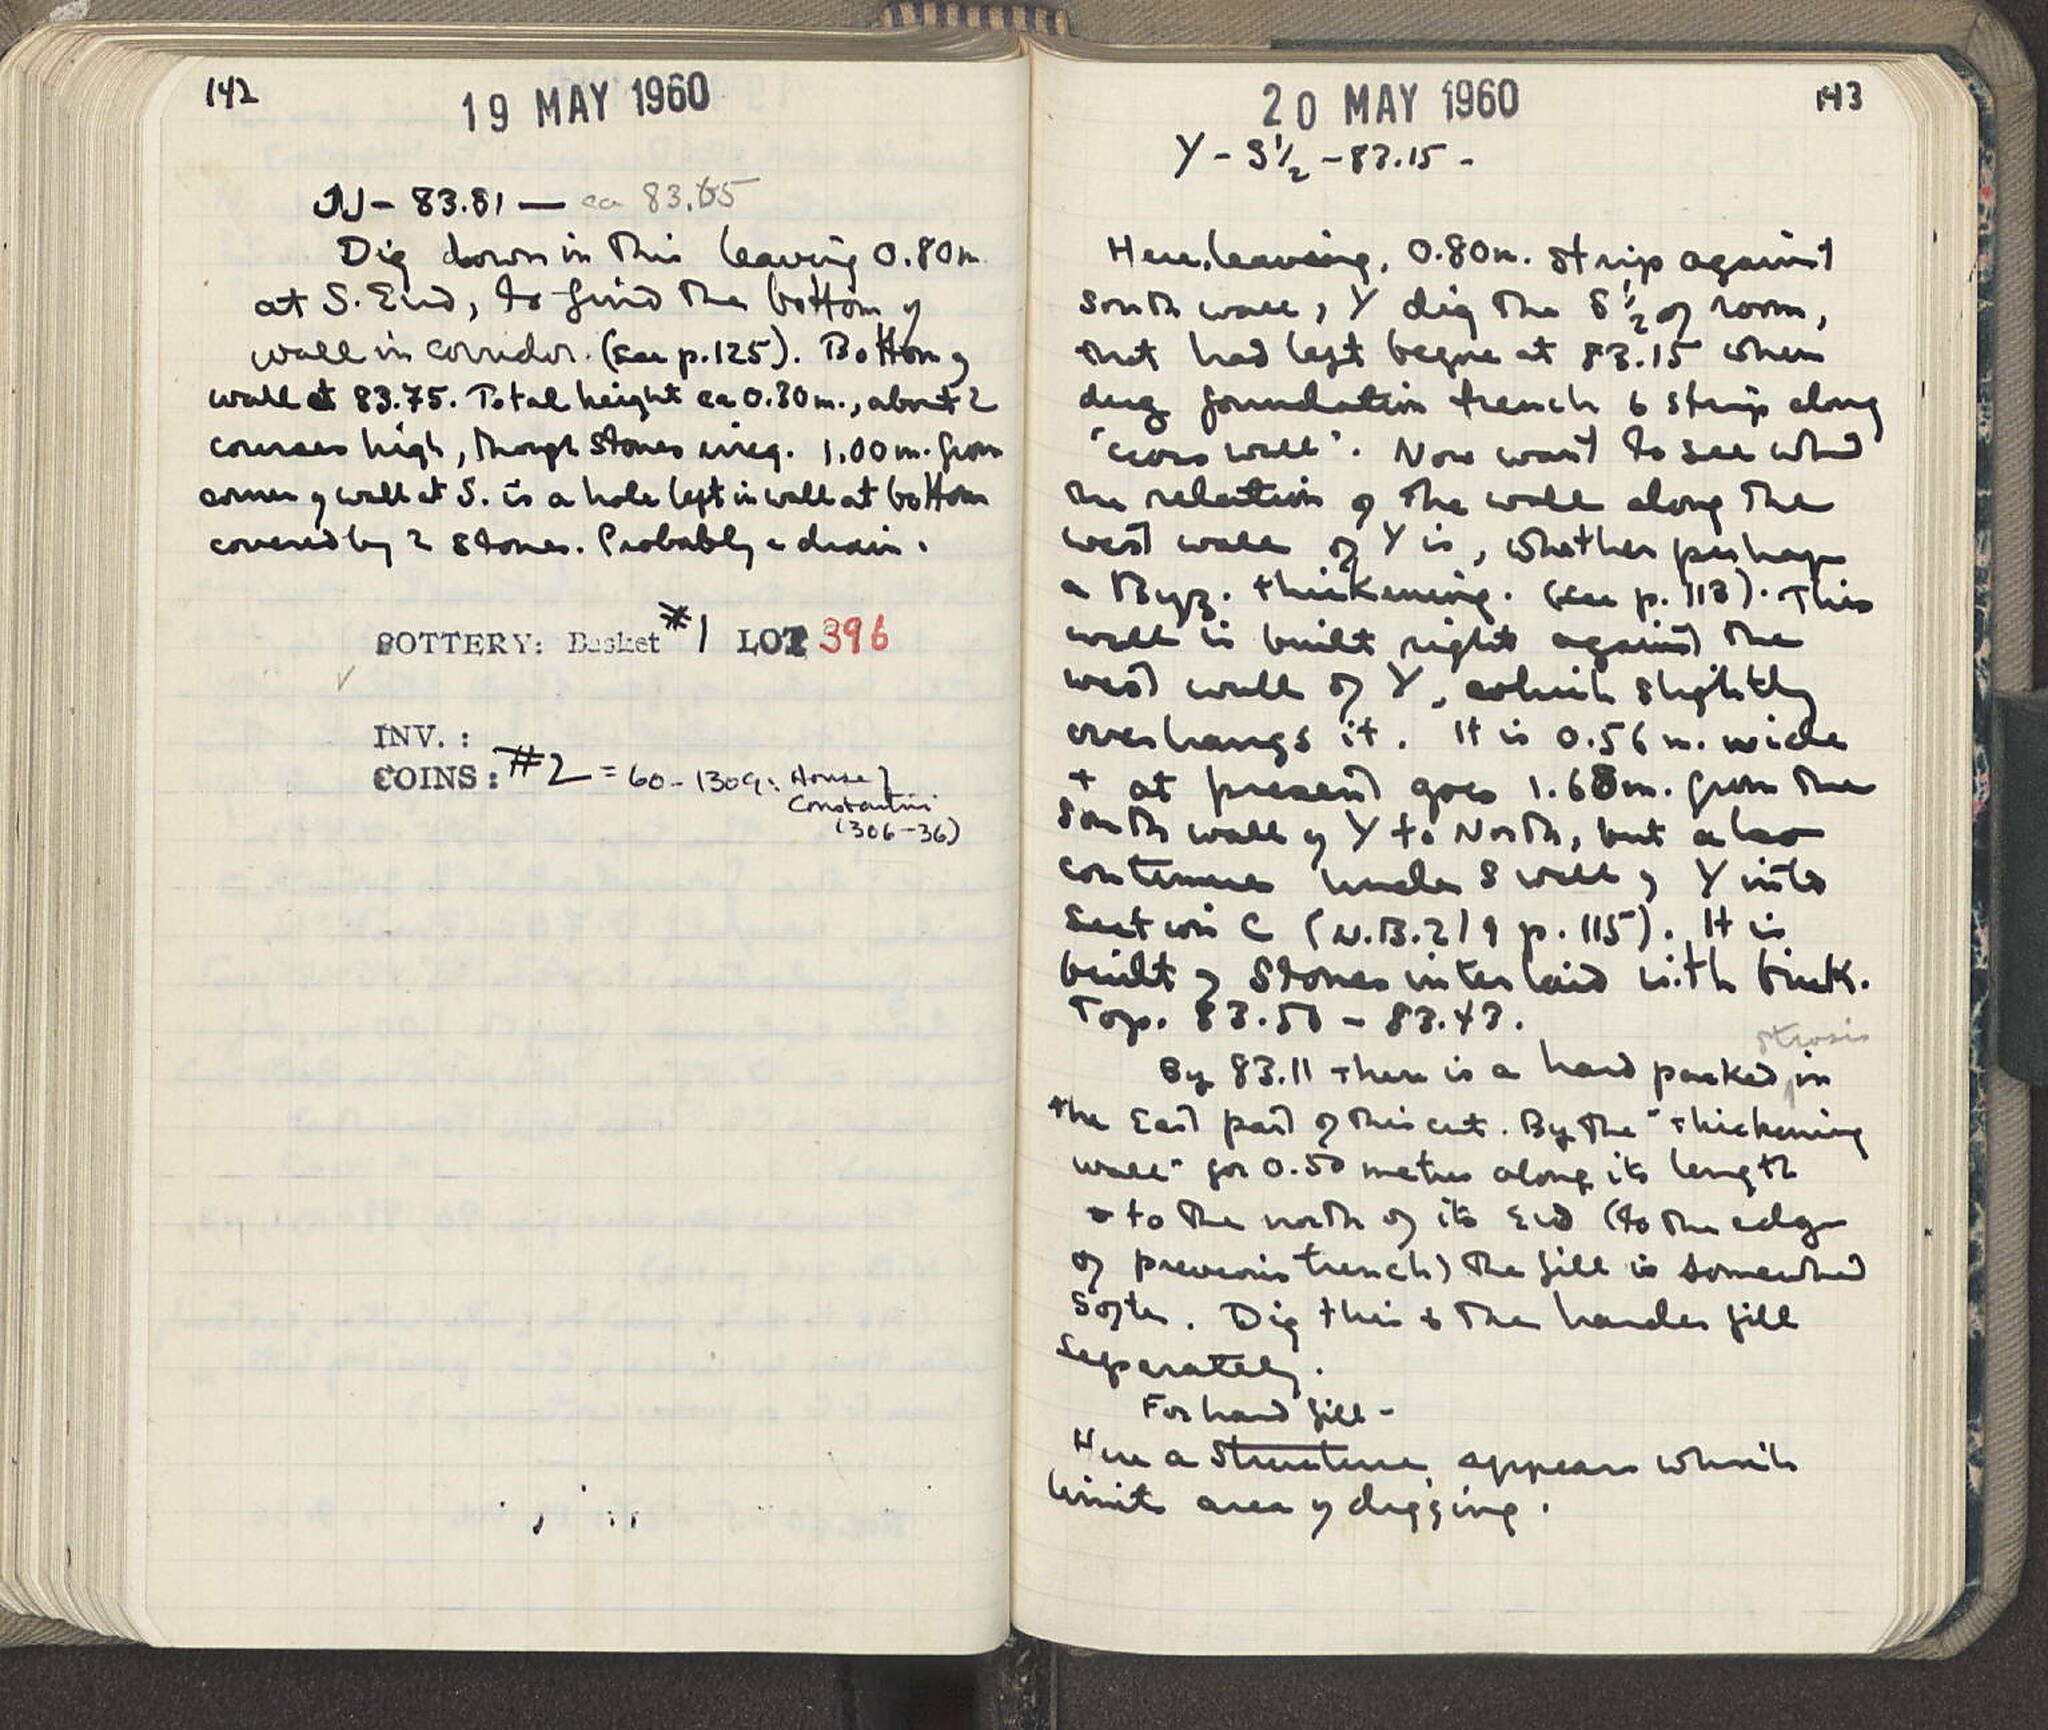 142
19 MAY 1960
JJ - 83.81 — ca 83.65
Dig down in this leaving 0.80m
at S. End, to find the bottom of
wall in corridor. (see p.125). Bottom of
wall at 83.75. Total height ca 0.30m., about 2
courses high, though stones irreg. 1.00m. from
corner of wall at S. is a hole left in wall at bottom
covered by 2 stones. Probably a drain.
POTTERY: Basket #1 LOT 396
INV.:
COINS: #2 = 60-1309: House of
Constantine
(306-36)
20 MAY 1960
143
Y - S 1/2 - 83.15 -
Here, leaving, 0.80m. strip against
south wall, Y dig the S 1/2 of room,
that had left before at 83.15 when
dug foundation trench & strip along
"cross wall". Now want to see what
the relation of the wall along the
west wall of Y is, whether perhaps
a Byz. thickening. (see p. 113). This
wall is built right against the
west wall of Y, which slightly
overhangs it. It is 0.56 m. wide
+ at present goes 1.68m. from the
South wall of Y to North, but also
continues under S wall of Y into
Section C (N.B. 219 p. 115). It is
built of stones interlaid with brick.
Top. 83.50 - 83.43.
By 83.11 there is a hard packed strosis in
the East part of this cut. By the "thickening
wall" for 0.50 metres along its length
+ to the north of its End (to the edge
of previous trench) the fill is somewhat
softer. Dig this & the harder fill
separately.
For hard fill -
Here a structure, appears which
limits area of digging.